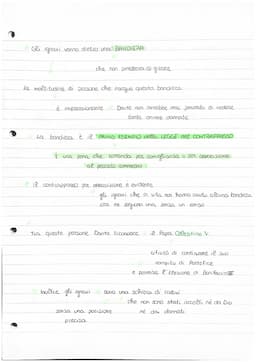 Gli ignavi vanno dietro una BANDIERA
che non smetteva di girare
La moltitudine di persone che segue questa bandiera
è impressionante Dante non avrebbe mai pensato di vedere
tante anime dannate
La bandiera è il PRIMO ESEMPIO DELLA LEGGE DEL CONTRAPPASSO
È una pena che
al peccato commesso
Il contrappasso per è evidente
gli ignavi che in vita non hanno avuto bandiera
ora ne seguono una senza un senso
Tra queste persone Dante riconosce il Papa Celestino V
rifiutò di continuare il suo
compito di Pontefice
e permise l'elezione di Bonifacio VIII
Inoltre gli ignavi sono una schiera di
che non sono stati accolti né da Dio
senza una posizione né dai dannati
precisa